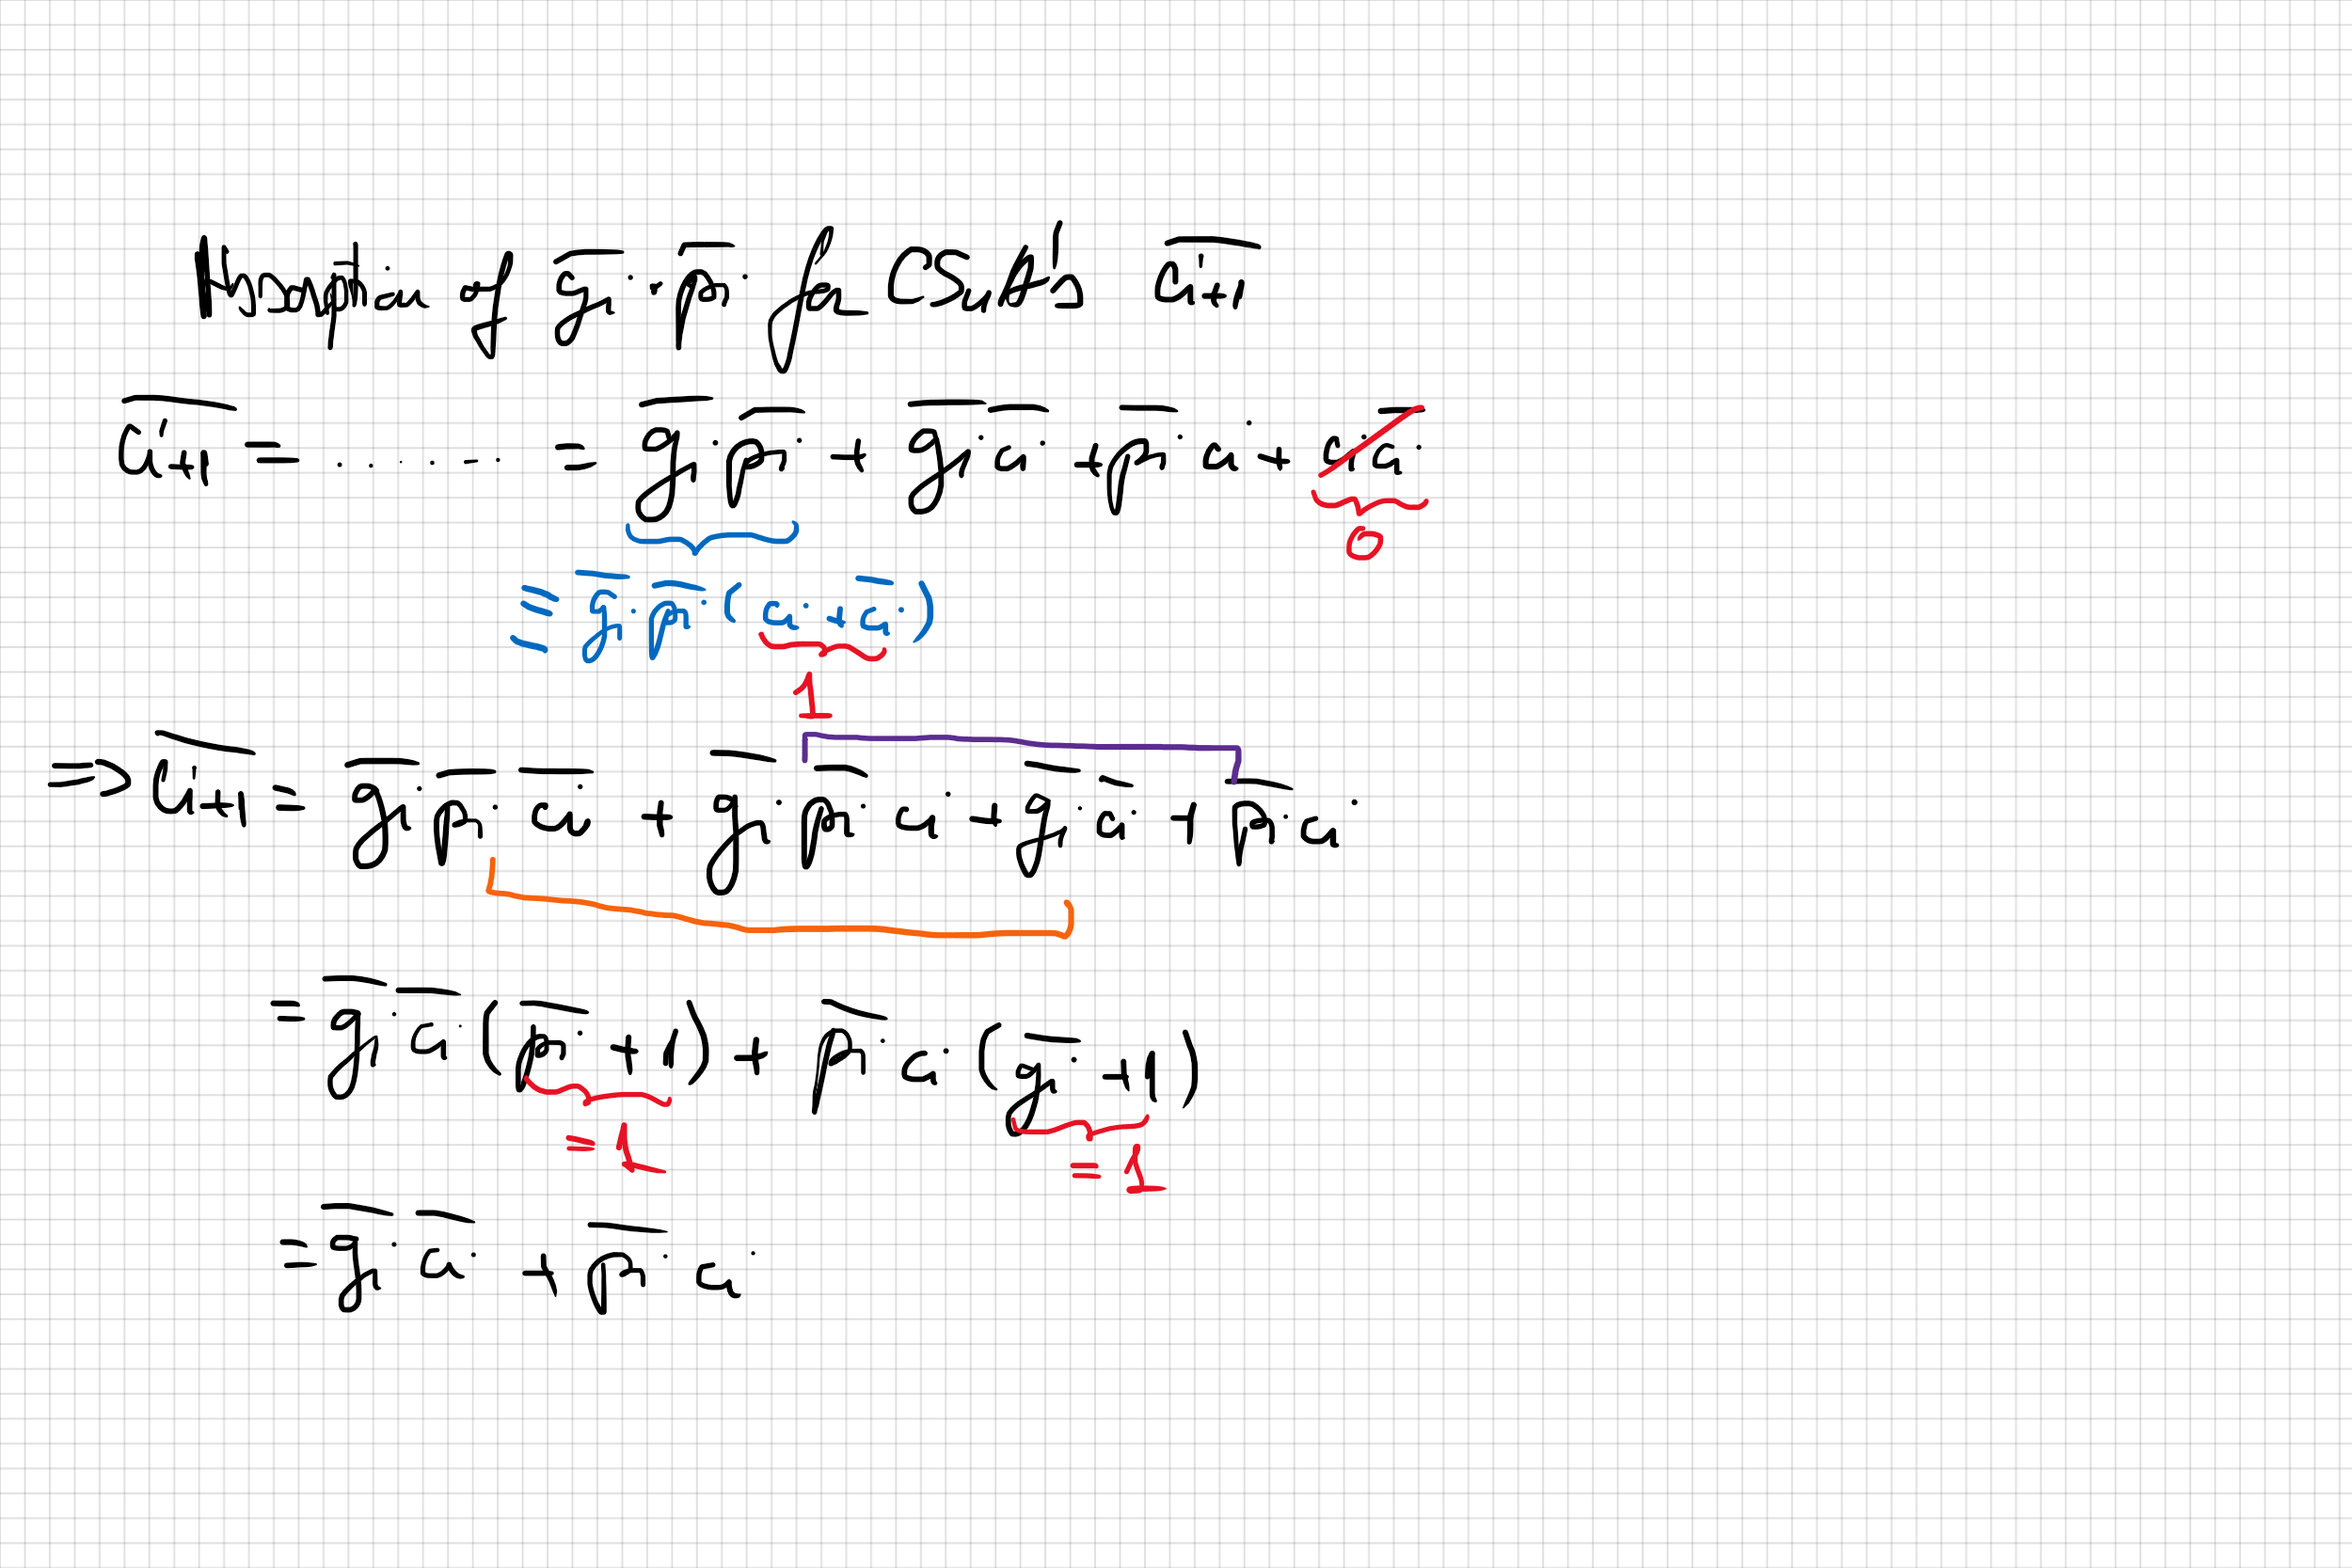 Absorption of g̅i p̅i for CSA's c̅i+1
c̅i+1 = ...... = g̅i p̅i + g̅i c̅i + p̅i ci + ci c̅i
0
≡ g̅i p̅i (ci + c̅i)
1
=> c̅i+1 = g̅i p̅i c̅i + g̅i p̅i ci + g̅i c̅i + p̅i ci
= g̅i c̅i (p̅i + 1) + p̅i ci (g̅i + 1)
= 1 = 1
= g̅i c̅i + p̅i ci